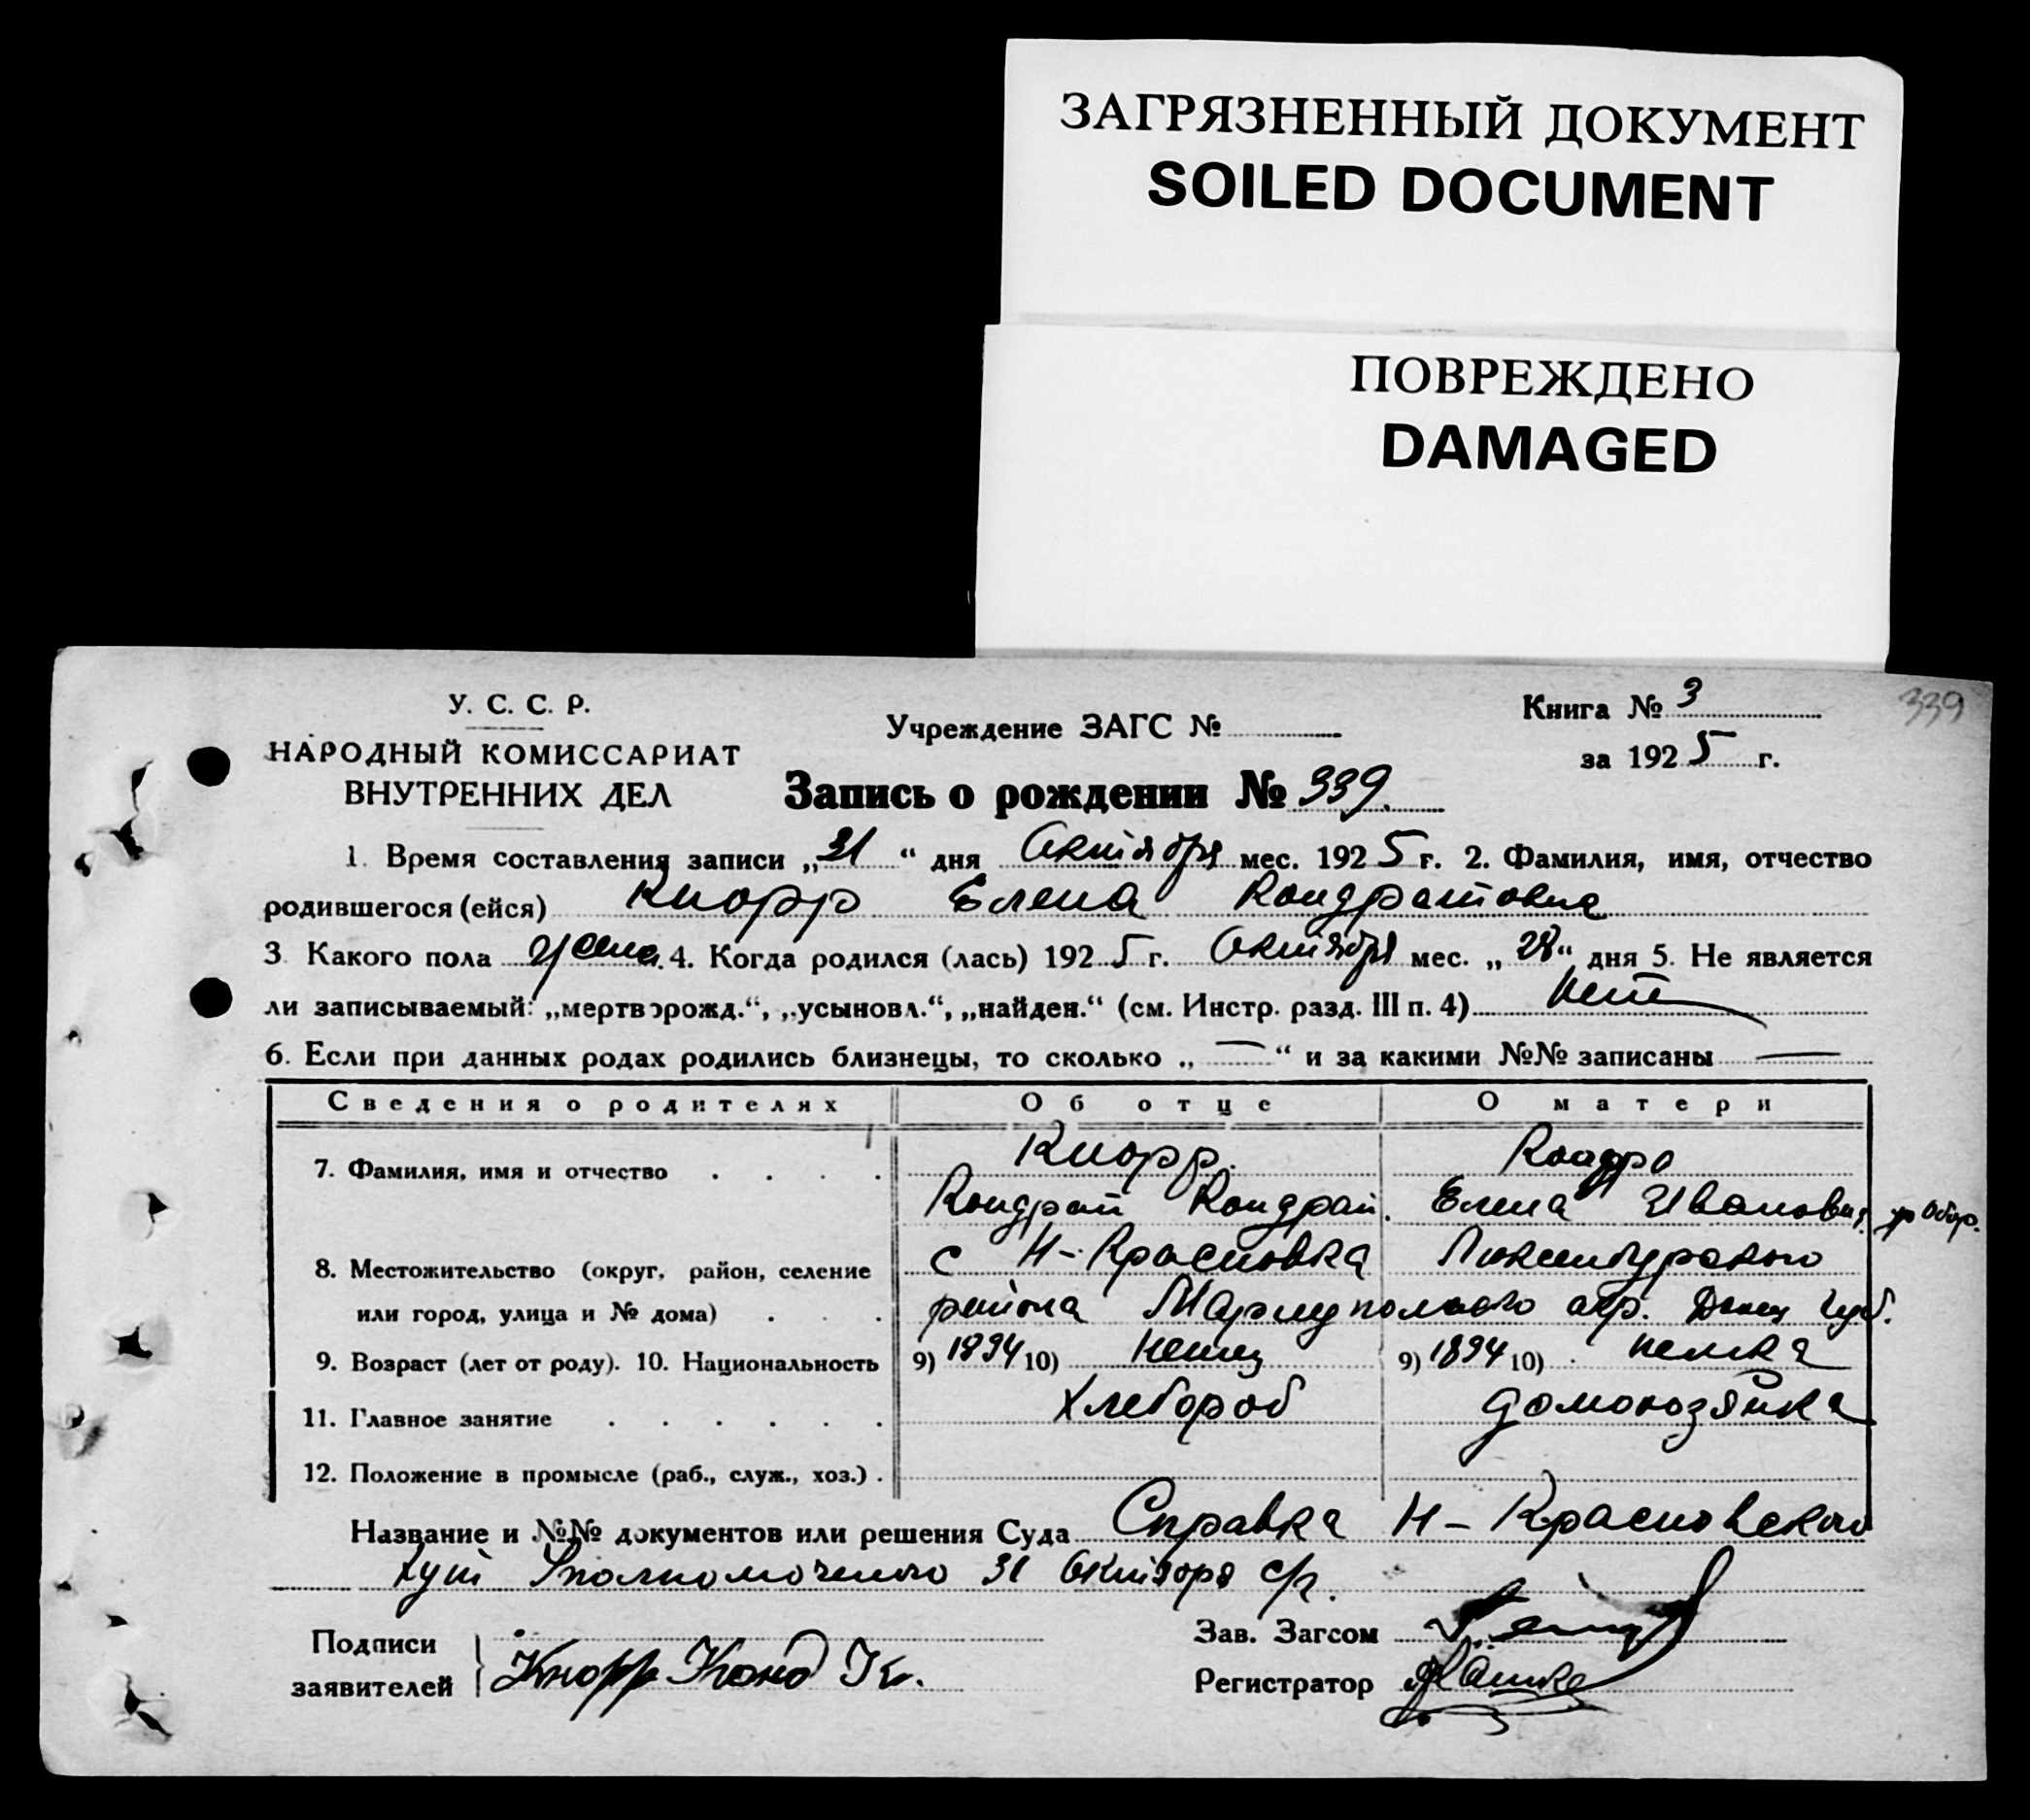 ЗАГРЯЗНЕННЫЙ ДОКУМЕНТ
SOILED DOCUMENT
ПОВРЕЖДЕНО
DAMAGED
339
У. С. С. Р.
НАРОДНЫЙ КОМИССАРИАТ
ВНУТРЕННИХ ДЕЛ
Учреждение ЗАГС №
Книга № 3
за 1925 г.
Запись о рождении № 339.
1. Время составления записи „31“ дня Октября мес. 1925 г. 2. Фамилия, имя, отчество
родившегося (ейся) Кнорр Елена Кондратовна
3. Какого пола жена. 4. Когда родился (лась) 1925 г. Октября мес. „28“ дня 5. Не является
ли записываемый: „мертворожд.“, „усыновл.“, „найден.“ (см. Инстр. разд. III п. 4) Нет
6. Если при данных родах родились близнецы, то сколько „—“ и за какими №№ записаны —
Сведения о родителях Об отце О матери
7. Фамилия, имя и отчество Кнорр. Кнорр
Кондрат Кондрат. Елена Ивановна
8. Местожительство (округ, район, селение с Н-Красновка Люксембургского
или город, улица и № дома) района Мариупольского окр. Донец Губ.
9. Возраст (лет от роду). 10. Национальность 9) 1894 10) немец 9) 1894 10) немка
11. Главное занятие Хлебороб домохозяйка
12. Положение в промысле (раб., служ., хоз.)
Название и №№ документов или решения Суда Справка Н-Красновского
хут Уполномоченого 31 Октября с/г.
Подписи
заявителей Кнорр Конд К.
Зав. Загсом
Регистратор